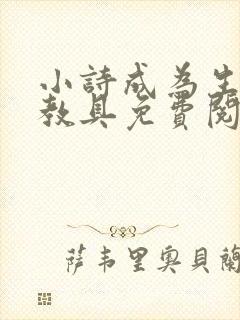 小詩成為生
教具免費閱
萨韦里奥贝蘭